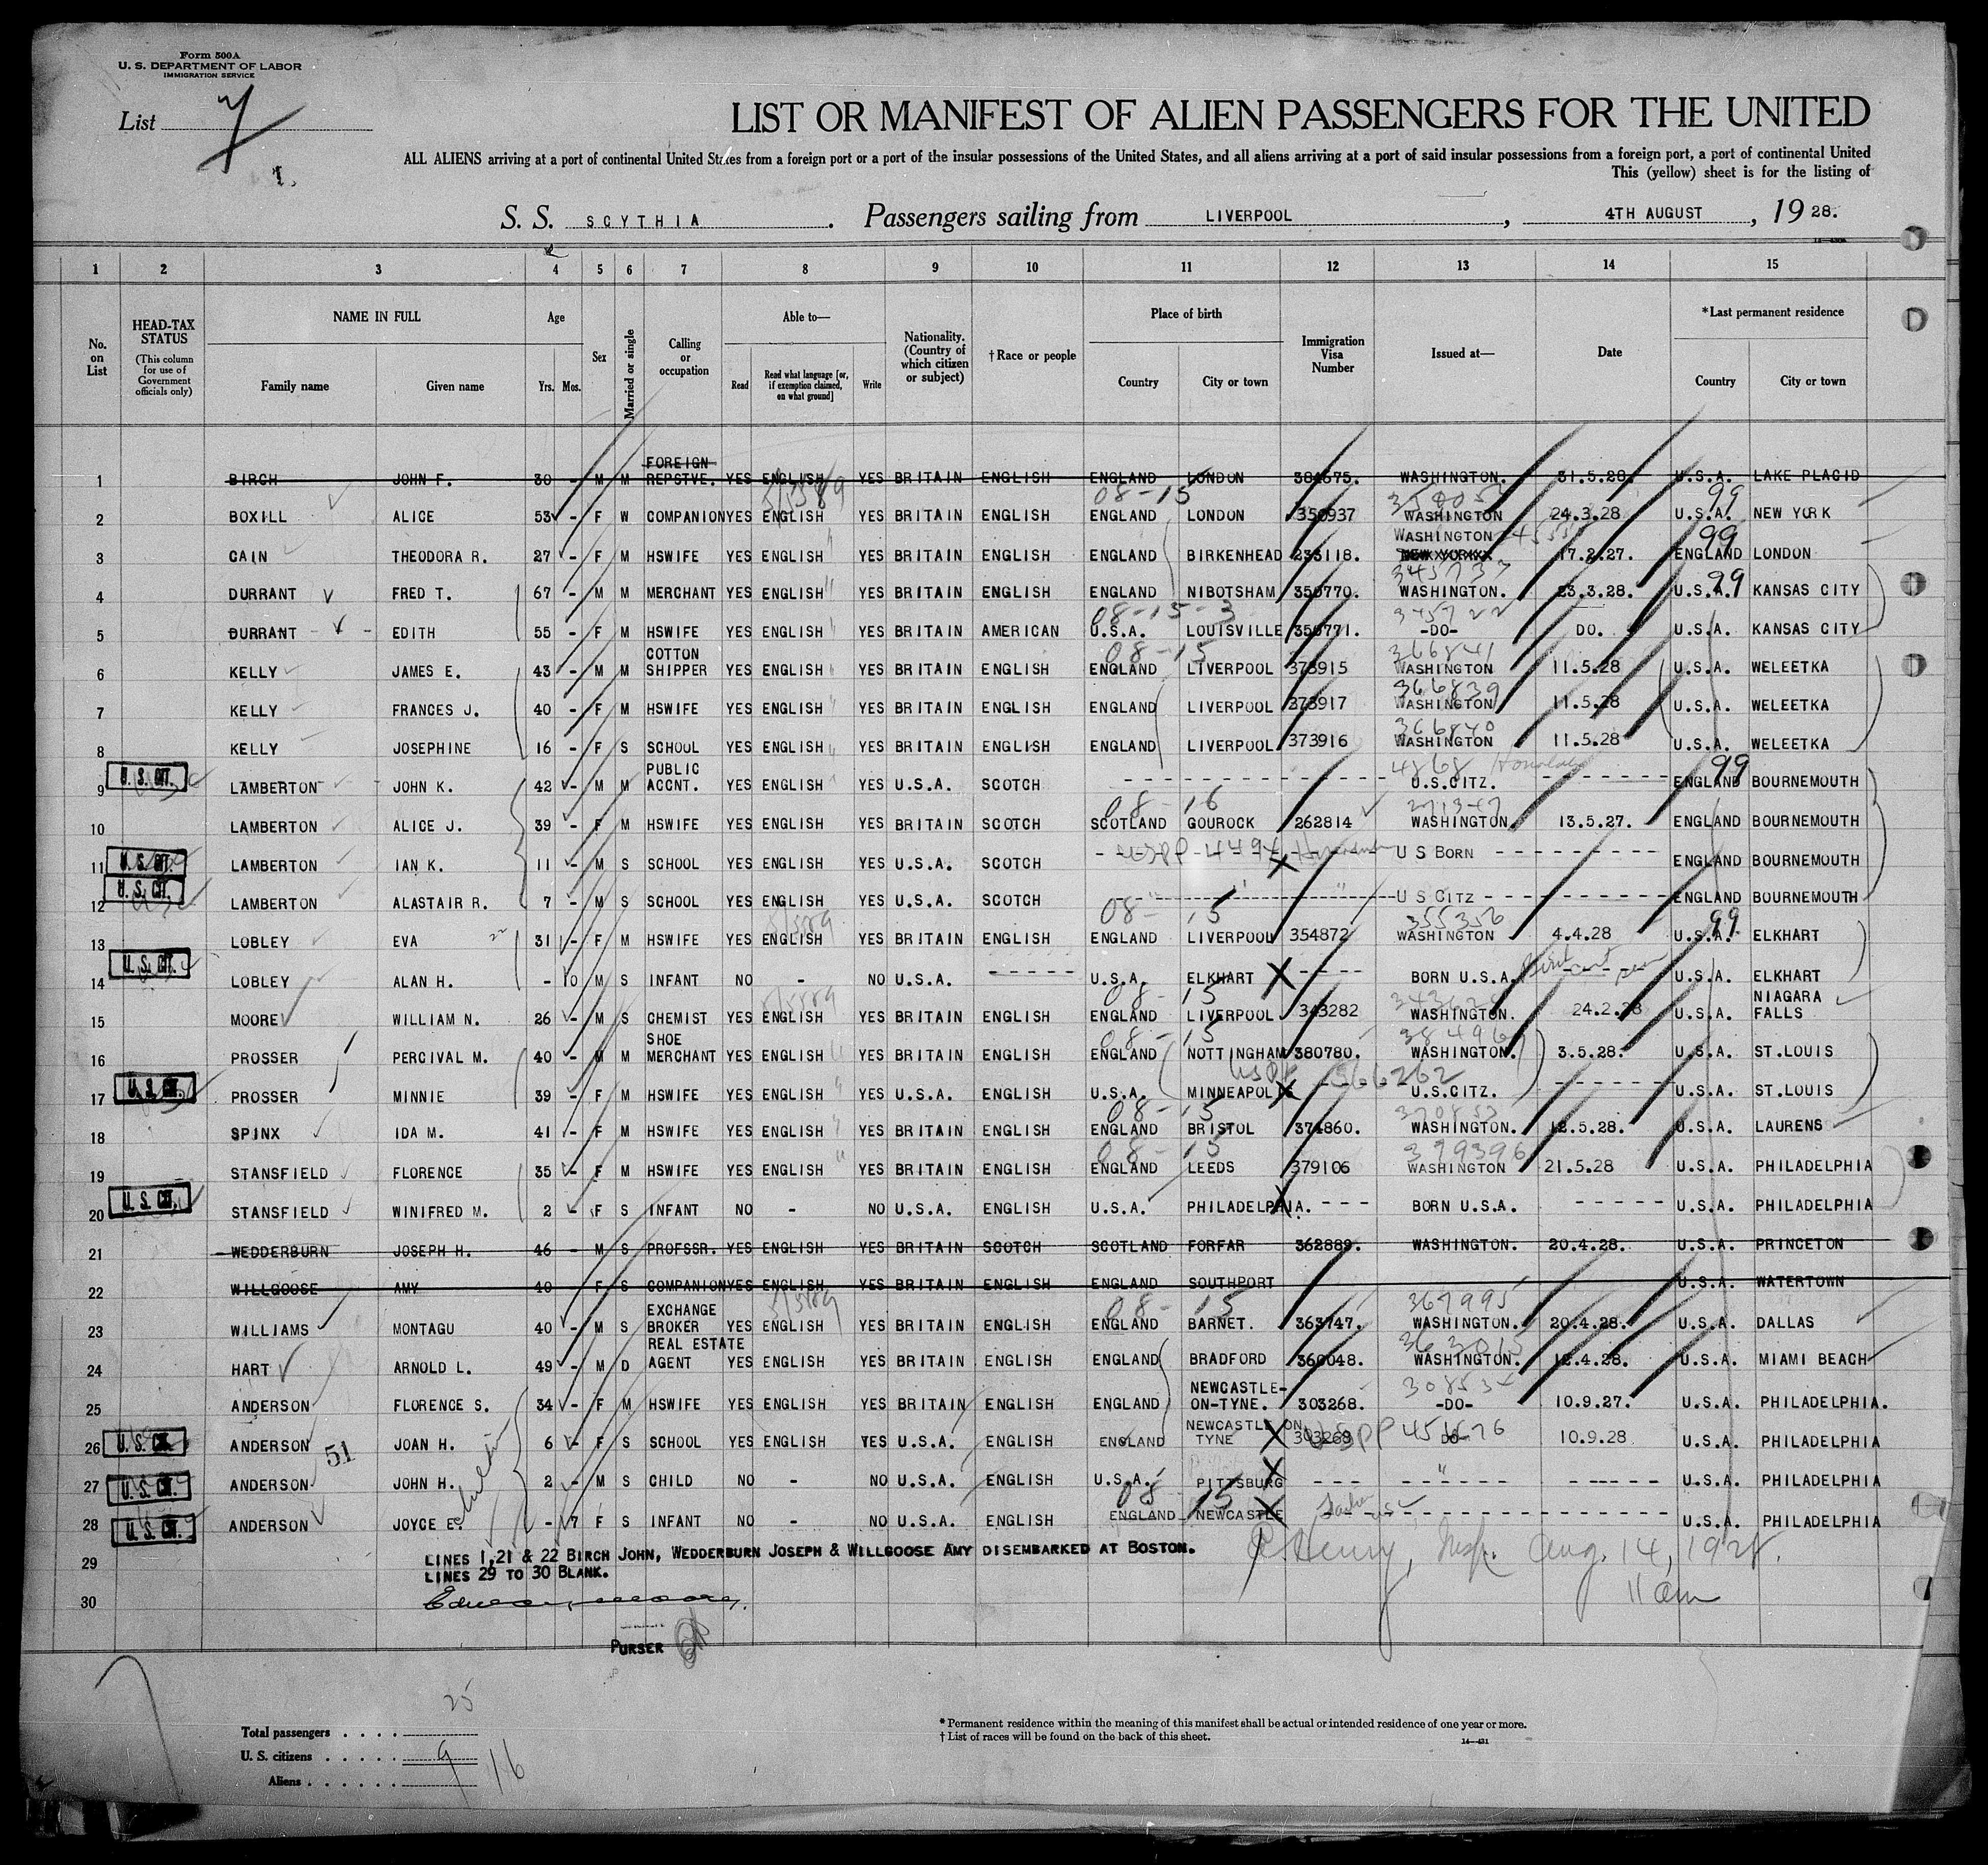 Form 500A
U. S. DEPARTMENT OF LABOR
IMMIGRATION SERVICE
List 7
1.
LIST OR MANIFEST OF ALIEN PASSENGERS FOR THE UNITED
ALL ALIENS arriving at a port of continental United States from a foreign port or a port of the insular possessions of the United States, and all aliens arriving at a port of said insular possessions from a foreign port, a port of continental United
This (yellow) sheet is for the listing of
S. S. SCYTHIA. Passengers sailing from LIVERPOOL, 4TH AUGUST, 19 28.
1 2 3 4 5 6 7 8 9 10 11 12 13 14 15
No. on List
HEAD-TAX STATUS (This column for use of Government officials only)
NAME IN FULL
Family name Given name
Age
Yrs. Mos.
Sex
Married or single
Calling or occupation
Able to—
Read Read what language [or, if exemption claimed, on what ground] Write
Nationality. (Country of which citizen or subject)
† Race or people
Place of birth
Country City or town
Immigration Visa Number
Issued at—
Date
*Last permanent residence
Country City or town
1 BIRCH JOHN F. 30 - M M FOREIGN REPSTVE. YES ENGLISH YES BRITAIN ENGLISH ENGLAND LONDON 384675. WASHINGTON. 31.5.28. U.S.A. LAKE PLACID
2 BOXILL ALICE 53 - F W COMPANION YES ENGLISH YES BRITAIN ENGLISH ENGLAND LONDON 350937 WASHINGTON 24.3.28 U.S.A. NEW YORK
3 CAIN THEODORA R. 27 - F M HSWIFE YES ENGLISH YES BRITAIN ENGLISH ENGLAND BIRKENHEAD 233118. WASHINGTON 17.2.27. ENGLAND LONDON
4 DURRANT FRED T. 67 - M M MERCHANT YES ENGLISH YES BRITAIN ENGLISH ENGLAND NIBOTSHAM 350770. WASHINGTON. 23.3.28. U.S.A. KANSAS CITY
5 DURRANT EDITH 55 - F M HSWIFE YES ENGLISH YES BRITAIN AMERICAN U.S.A. LOUISVILLE 350771. -DO- DO. U.S.A. KANSAS CITY
6 KELLY JAMES E. 43 - M M COTTON SHIPPER YES ENGLISH YES BRITAIN ENGLISH ENGLAND LIVERPOOL 373915 WASHINGTON 11.5.28 U.S.A. WELEETKA
7 KELLY FRANCES J. 40 - F M HSWIFE YES ENGLISH YES BRITAIN ENGLISH ENGLAND LIVERPOOL 373917 WASHINGTON 11.5.28 U.S.A. WELEETKA
8 KELLY JOSEPHINE 16 - F S SCHOOL YES ENGLISH YES BRITAIN ENGLISH ENGLAND LIVERPOOL 373916 WASHINGTON 11.5.28 U.S.A. WELEETKA
9 U. S. CIT. LAMBERTON JOHN K. 42 - M M PUBLIC ACCNT. YES ENGLISH YES U.S.A. SCOTCH U.S.CITZ. ENGLAND BOURNEMOUTH
10 LAMBERTON ALICE J. 39 - F M HSWIFE YES ENGLISH YES BRITAIN SCOTCH SCOTLAND GOUROCK 262814 WASHINGTON 13.5.27. ENGLAND BOURNEMOUTH
11 U. S. CIT. LAMBERTON IAN K. 11 - M S SCHOOL YES ENGLISH YES U.S.A. SCOTCH U S BORN ENGLAND BOURNEMOUTH
12 U. S. CIT. LAMBERTON ALASTAIR R. 7 - M S SCHOOL YES ENGLISH YES U.S.A. SCOTCH U S CITZ ENGLAND BOURNEMOUTH
13 LOBLEY EVA 31 - F M HSWIFE YES ENGLISH YES BRITAIN ENGLISH ENGLAND LIVERPOOL 354872 WASHINGTON 4.4.28 U.S.A. ELKHART
14 U. S. CIT. LOBLEY ALAN H. - 10 M S INFANT NO - NO U.S.A. U.S.A. ELKHART BORN U.S.A. U.S.A. ELKHART
15 MOORE WILLIAM N. 26 - M S CHEMIST YES ENGLISH YES BRITAIN ENGLISH ENGLAND LIVERPOOL 343282 WASHINGTON. 24.2.28 U.S.A. NIAGARA FALLS
16 PROSSER PERCIVAL M. 40 - M M SHOE MERCHANT YES ENGLISH YES BRITAIN ENGLISH ENGLAND NOTTINGHAM 380780. WASHINGTON. 3.5.28. U.S.A. ST.LOUIS
17 U. S. CIT. PROSSER MINNIE 39 - F M HSWIFE YES ENGLISH YES U.S.A. ENGLISH U.S.A. MINNEAPOLIS U.S.CITZ. U.S.A. ST.LOUIS
18 SPINX IDA M. 41 - F M HSWIFE YES ENGLISH YES BRITAIN ENGLISH ENGLAND BRISTOL 374860. WASHINGTON. 12.5.28. U.S.A. LAURENS
19 STANSFIELD FLORENCE 35 - F M HSWIFE YES ENGLISH YES BRITAIN ENGLISH ENGLAND LEEDS 379106 WASHINGTON 21.5.28 U.S.A. PHILADELPHIA
20 U. S. CIT. STANSFIELD WINIFRED M. 2 - F S INFANT NO - NO U.S.A. ENGLISH U.S.A. PHILADELPHIA. BORN U.S.A. U.S.A. PHILADELPHIA
21 WEDDERBURN JOSEPH H. 46 - M S PROFSSR. YES ENGLISH YES BRITAIN SCOTCH SCOTLAND FORFAR 362889. WASHINGTON. 20.4.28. U.S.A. PRINCETON
22 WILLGOOSE AMY 40 - F S COMPANION YES ENGLISH YES BRITAIN ENGLISH ENGLAND SOUTHPORT U.S.A. WATERTOWN
23 WILLIAMS MONTAGU 40 - M S EXCHANGE BROKER YES ENGLISH YES BRITAIN ENGLISH ENGLAND BARNET. 363747. WASHINGTON. 20.4.28. U.S.A. DALLAS
24 HART ARNOLD L. 49 - M D REAL ESTATE AGENT YES ENGLISH YES BRITAIN ENGLISH ENGLAND BRADFORD 360048. WASHINGTON. 12.4.28. U.S.A. MIAMI BEACH
25 ANDERSON FLORENCE S. 34 - F M HSWIFE YES ENGLISH YES BRITAIN ENGLISH ENGLAND NEWCASTLE-ON-TYNE. 303268. -DO- 10.9.27. U.S.A. PHILADELPHIA.
26 U. S. CIT. ANDERSON JOAN H. 6 - F S SCHOOL YES ENGLISH YES U.S.A. ENGLISH ENGLAND NEWCASTLE ON TYNE 303269 DO 10.9.28 U.S.A. PHILADELPHIA
51
27 U. S. CIT. ANDERSON JOHN H. 2 - M S CHILD NO - NO U.S.A. ENGLISH U.S.A. PITTSBURG U.S.A. PHILADELPHIA
28 U. S. CIT. ANDERSON JOYCE E. - 7 F S INFANT NO - NO U.S.A. ENGLISH ENGLAND NEWCASTLE U.S.A. PHILADELPHIA
29 LINES 1,21 & 22 BIRCH JOHN, WEDDERBURN JOSEPH & WILLGOOSE AMY DISEMBARKED AT BOSTON.
LINES 29 TO 30 BLANK.
Henry, Insp. Aug. 14, 1928.
11 am
30
PURSER
Total passengers . . . . 25
U. S. citizens . . . . . 9
Aliens . . . . . . 16
* Permanent residence within the meaning of this manifest shall be actual or intended residence of one year or more.
† List of races will be found on the back of this sheet.
14—431